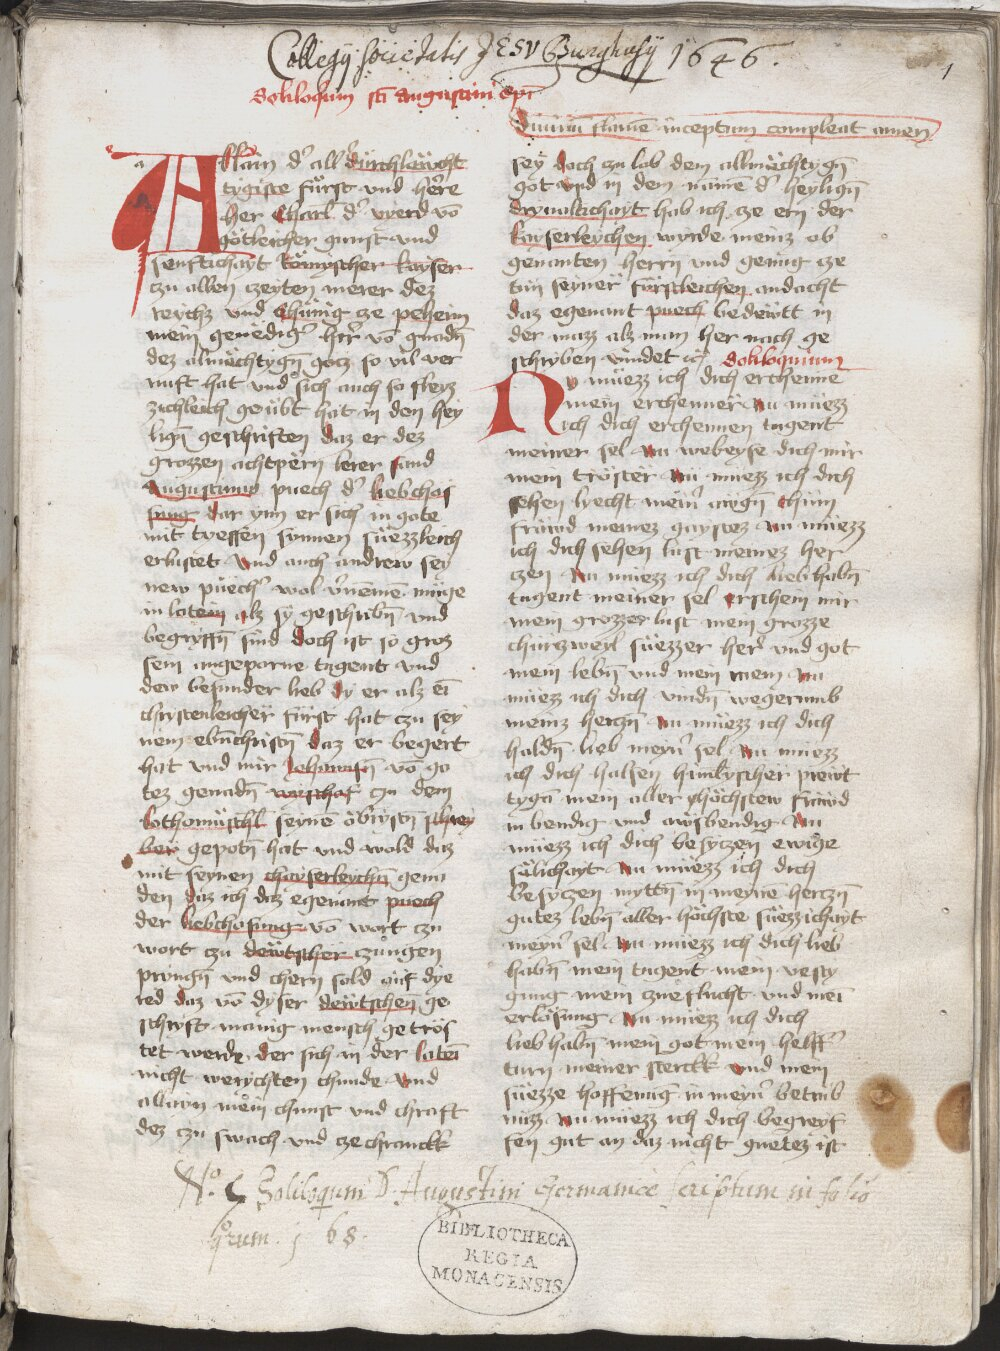 Collegij societatis JESV Burghusij 1646.
1
Soliloquium sti Augustini epi
diuinū flamē inceptum compleat amen
Allain dˢ all durchlauchst
tygiste fürst vnd herre
her Charl dˢ wyerd vō
götleicher gunst vnd
senftichayt Römischer kayser
czu allen czeyten merer dez
reychz vnd Chünig cze peheim
mein genedigˢ herˢ vō gnadn̄
dez almächtygn̄ gotz so vil ver
nuft hat vnd sich auch so fleyz
zichleich geübt hat in den hey
lign̄ geschriften daz er dez
grozzen achtpern lerer sand
Augustinus puech dˢ liebchos
sung dar ynn er sich in gote
mit treffen synnen süezzleich
erlustet vnd auch andrew sey
new puechˢ wol vˢnemē müge
in latein alz sy geschribn̄ vnd
begryffn̄ sind doch ist so groz
sein angeporne tugent vnd
dew besunder lieb dy er alz eī
christenleicher fürst hat czu sey
nem ebn̄christn̄ daz er begert
hat vnd mir Johannsn̄ vō go
tez genadn̄ wyschof czu dem
luthomüschl seyne öbrystn̄ schrey
ber gepotn̄ hat vnd wold daz
mit seynen chayserleychn̄ gena
den daz ich daz egenant puech
der liebchosung vō wort czu
wort czu dewtscher czungen
pryngn̄ vnd chern sold auf dye
red daz vō dyser dewtschen ge
schrift manig mensch getrös
tet werde der sich in der lateī
nicht werychten chunde vnd
allain mein chunst vnd chraft
dez czu swach vnd czechranckk
sey doch czu lob dem allmächtygn̄
got vnd in dem namē dˢ heylign̄
dryualtichayt hab ich cze ern der
kayserleychen wyrde meinz ob
genanten herrn vnd genug cze
tun seyner fürstleichen andacht
daz egenant puech bedewtt in
der mazz alz man her nach ge
schryben vindet Soliloquium
Nv müezz ich dich erchenne
mein erchenner Nu müezz
ich dich erchennen tugent
meiner sel Nu webeyse dich mir
mein tröster Nu müezz ich dich
sehen lyecht meinˢ augn̄ chum
fräwd meinez gaystez Nu müezz
ich dich sehen lust meinez her
czen Nu müezz ich dich lieb habn̄
tugent meiner sel erschein mir
mein grozzer lust mein grozze
churczweyl süezzer herˢ vnd got
mein lebn̄ vnd mein mein Nu
müezz ich dich vindn̄ wegerumb
meinz herczn̄ Nu müezz ich dich
haldn̄ lieb meynˢ sel Nu müezz
ich dich halsen himlyscher prewt
tygā mein aller yhöchstew fräwd
inbendig vnd awsbendig Nu
müezz ich dich besyczen ewige
sälichayt Nu müezz ich dich
besyczen myttn̄ in meyne herczn̄
gutez lebn̄ aller höchste süezzichayt
meynˢ sel Nu müezz ich dich lieb
habn̄ mein tugent mein vesty
gung mein czueflucht vnd meī
erlösung Nu müezz ich dich
lieb habn̄ mein got mein helffˢ
turn meiner sterckk vnd mein
süezze hoffenung in meynˢ betrüb
nüzz Nu müezz ich dich begreyf
fen gut an daz nicht guetez ist
No. 5 Soliloquium D. Augustini Germanicè scriptum in folio
68.
BIBLIOTHECA
REGIA
MONACENSIS